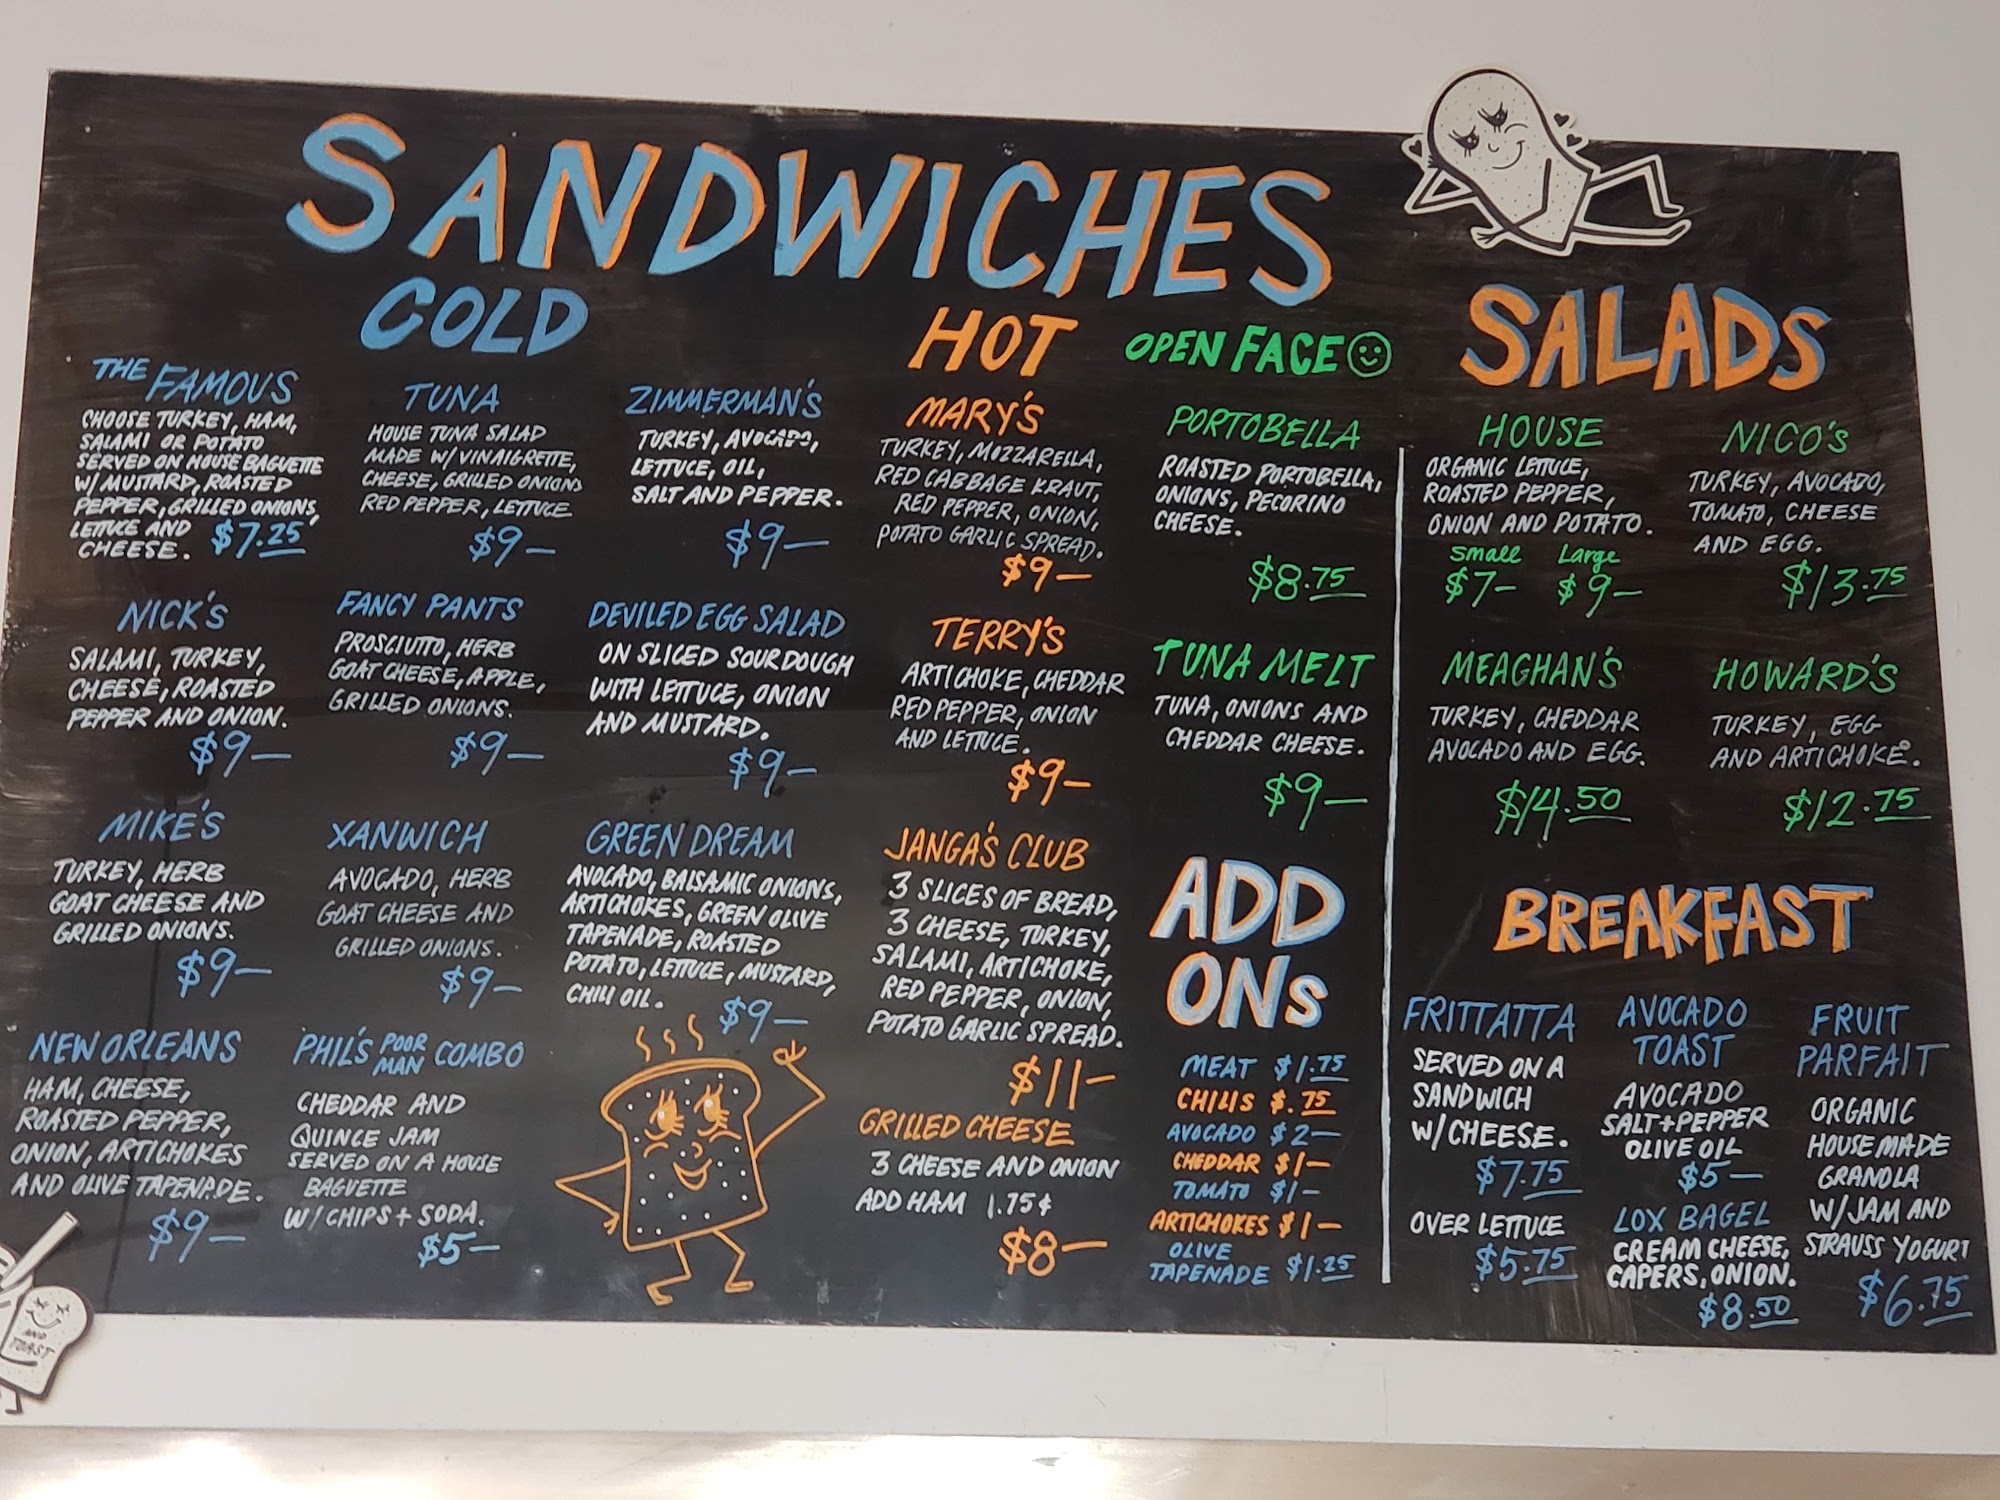 SANDWICHES
COLD
THE FAMOUS
CHOOSE TURKEY, HAM,
SALAMI OR POTATO
SERVED ON HOUSE BAGUETTE
W/ MUSTARD, ROASTED
PEPPER, GRILLED ONIONS,
LETTUCE AND
CHEESE. $7.25
TUNA
HOUSE TUNA SALAD
MADE W/ VINAIGRETTE,
CHEESE, GRILLED ONIONS
RED PEPPER, LETTUCE
$9—
ZIMMERMAN'S
TURKEY, AVOCADO,
LETTUCE, OIL,
SALT AND PEPPER.
$9—
NICK'S
SALAMI, TURKEY,
CHEESE, ROASTED
PEPPER AND ONION.
$9—
FANCY PANTS
PROSCIUTTO, HERB
GOAT CHEESE, APPLE,
GRILLED ONIONS.
$9—
DEVILED EGG SALAD
ON SLICED SOURDOUGH
WITH LETTUCE, ONION
AND MUSTARD.
$9—
MIKE'S
TURKEY, HERB
GOAT CHEESE AND
GRILLED ONIONS.
$9—
XANWICH
AVOCADO, HERB
GOAT CHEESE AND
GRILLED ONIONS.
$9—
GREEN DREAM
AVOCADO, BALSAMIC ONIONS,
ARTICHOKES, GREEN OLIVE
TAPENADE, ROASTED
POTATO, LETTUCE, MUSTARD,
CHILI OIL.
$9—
NEW ORLEANS
HAM, CHEESE,
ROASTED PEPPER,
ONION, ARTICHOKES
AND OLIVE TAPENADE.
$9—
PHIL'S POOR MAN COMBO
CHEDDAR AND
QUINCE JAM
SERVED ON A HOUSE
BAGUETTE
W/ CHIPS + SODA.
$5—
HOT
MARY'S
TURKEY, MOZZARELLA,
RED CABBAGE KRAUT,
RED PEPPER, ONION,
POTATO GARLIC SPREAD.
$9—
TERRY'S
ARTICHOKE, CHEDDAR
RED PEPPER, ONION
AND LETTUCE.
$9—
JANGA'S CLUB
3 SLICES OF BREAD,
3 CHEESE, TURKEY,
SALAMI, ARTICHOKE,
RED PEPPER, ONION,
POTATO GARLIC SPREAD.
$11—
GRILLED CHEESE
3 CHEESE AND ONION
ADD HAM 1.75¢
$8—
OPEN FACE
PORTOBELLA
ROASTED PORTOBELLA,
ONIONS, PECORINO
CHEESE.
$8.75
TUNA MELT
TUNA, ONIONS AND
CHEDDAR CHEESE.
$9—
ADD
ONS
MEAT $1.75
CHILIS $.75
AVOCADO $2—
CHEDDAR $1—
TOMATO $1—
ARTICHOKES $1—
OLIVE
TAPENADE $1.25
SALADS
HOUSE
ORGANIC LETTUCE,
ROASTED PEPPER,
ONION AND POTATO.
Small Large
$7— $9—
NICO'S
TURKEY, AVOCADO,
TOMATO, CHEESE
AND EGG.
$13.75
MEAGHAN'S
TURKEY, CHEDDAR
AVOCADO AND EGG.
$14.50
HOWARD'S
TURKEY, EGG
AND ARTICHOKE.
$12.75
BREAKFAST
FRITTATTA
SERVED ON A
SANDWICH
W/ CHEESE.
$7.75
OVER LETTUCE
$5.75
AVOCADO
TOAST
AVOCADO
SALT + PEPPER
OLIVE OIL
$5—
LOX BAGEL
CREAM CHEESE,
CAPERS, ONION.
$8.50
FRUIT
PARFAIT
ORGANIC
HOUSE MADE
GRANOLA
W/ JAM AND
STRAUSS YOGURT
$6.75
AND
TOAST